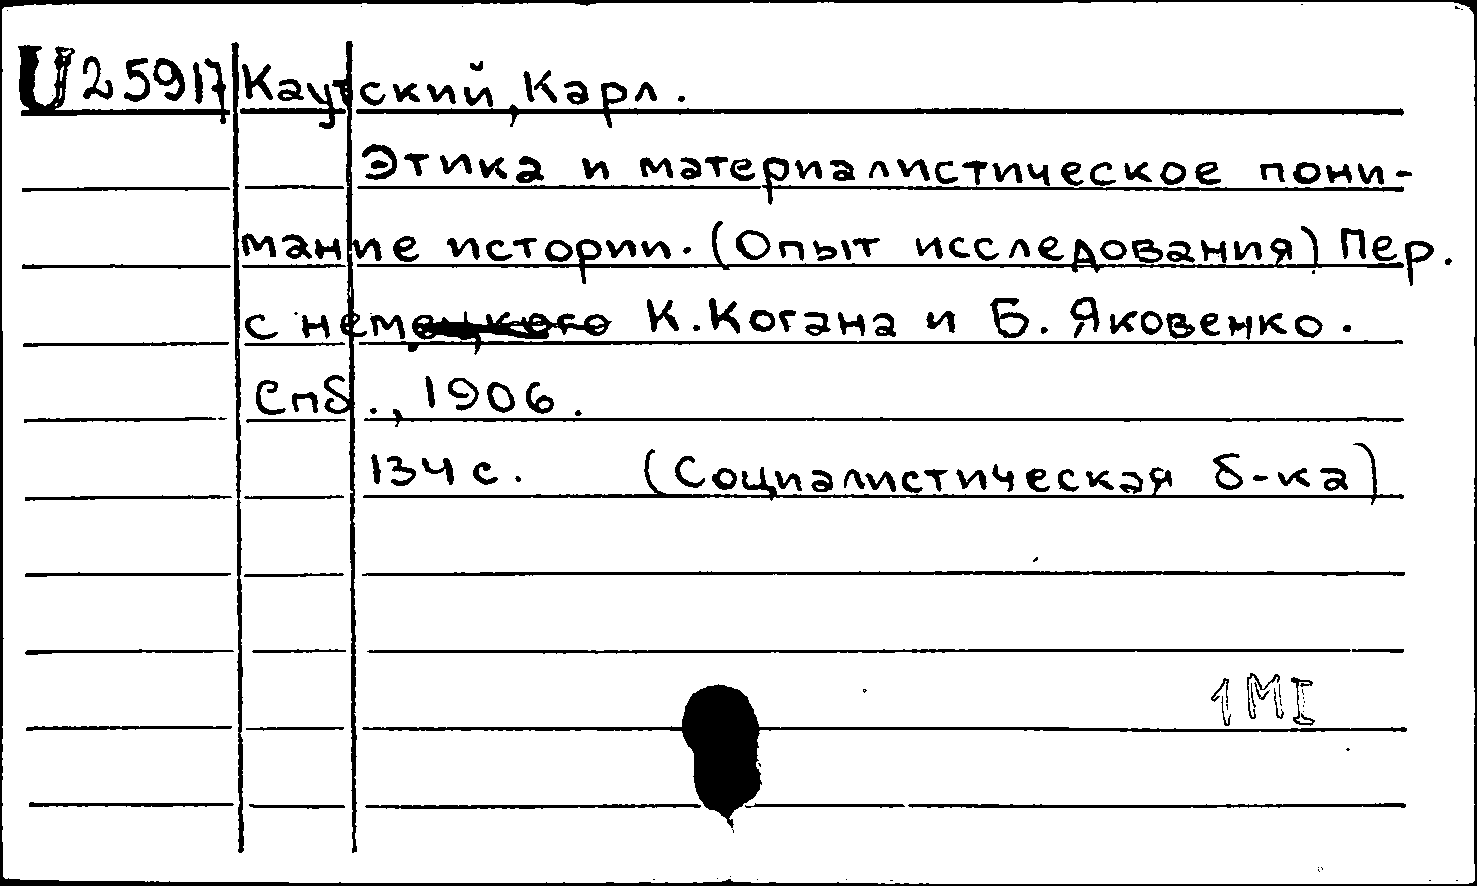 U25917 Каутский, Карл.
Этика и материалистическое пони-
мание истории. (Опыт исследования) Пер.
с нем. К. Когана и Б. Яковенко.
Спб., 1906.
134 с. (Социалистическая б-ка)
1MI